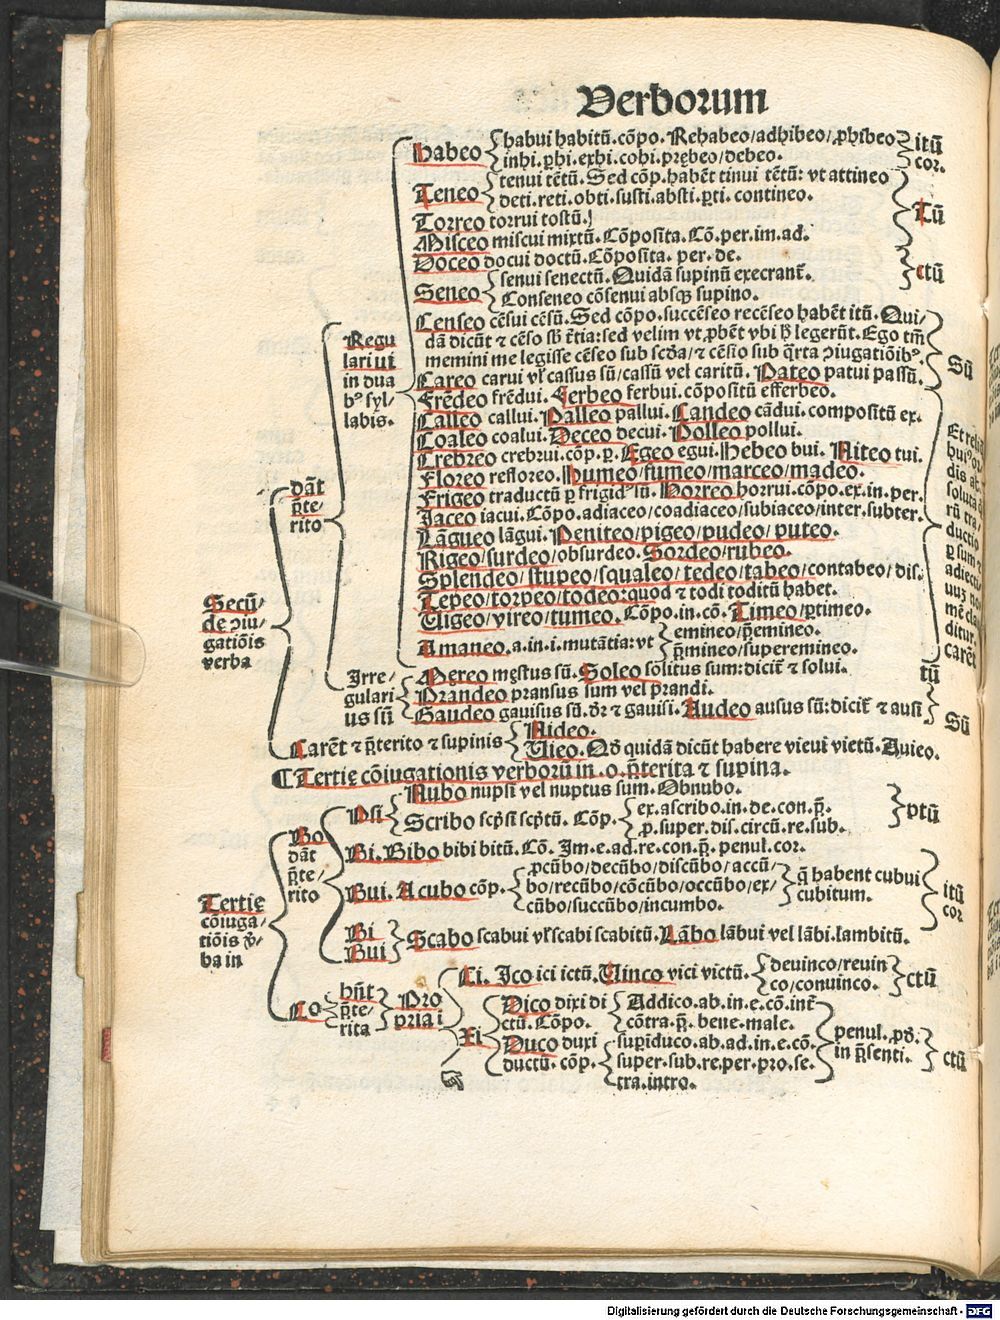 Verborum
Habeo habui habitū. cōpo. Rehabeo/adhibeo/ ꝓhibeo itū
inhi. ꝑhi. exhi. cohi. prębeo/debeo. cor.
Teneo tenui tētū. Sed cōp. habēt tinui tētū: vt attineo
deti. reti. obti. susti. absti. ꝑti. contineo. Tū
Torreo torrui tostū.
Misceo miscui mixtū. Cōposita. Cō. per. im. ad.
Doceo docui doctū. Cōposita. per. de. ctū
Seneo senui senectū. Quidā supinū execrant᷑.
Conseneo cōsenui absqꝫ supino.
Censeo cēsui cēsū. Sed cōpo. succēseo recēseo habēt itū. Qui/
dā dicūt ⁊ cēso sꝫ t̄tia: sed velim vt ꝓbēt vbi hͦ legerūt. Ego tn̄
memini me legisse cēseo sub scd̄a/ ⁊ cēsio sub q̄rta ↄiugatiōibꝰ. Sū
Careo carui vl̓ cassus sū/cassū vel caritū. Pateo patui passū.
Regu
lari ui
in dua
bꝰ syl/
labis.
Frēdeo frēdui. Ferbeo ferbui. cōpositū efferbeo.
Calleo callui. Palleo pallui. Candeo cādui. compositū ex.
Coaleo coalui. Deceo decui. Polleo pollui.
Crebreo crebrui. cōp. ꝑ. Egeo egui. Hebeo bui. Niteo tui.
Floreo refloreo. Humeo/fumeo/marceo/madeo.
Frigeo traductū ꝑ frigidꝰ sū. Horreo horrui. cōpo. ex. in. per.
Jaceo iacui. Cōpo. adiaceo/coadiaceo/subiaceo/inter. subter.
Lāgueo lāgui. Peniteo/pigeo/pudeo/ puteo.
Rigeo/surdeo/obsurdeo. Sordeo/rubeo.
Splendeo/ stupeo/squaleo/ tedeo/tabeo/contabeo/ dis.
Tepeo/torpeo/todeo: quod ⁊ todi toditū habet.
Uigeo/vireo/tumeo. Cōpo. in. cō. Timeo/ꝑtimeo.
Amaneo. a. in. i. mutātia: vt emineo/p̄emineo.
ꝑmineo/superemineo.
Et reli
bui
dis ab
soluta
rū tra/
ductio
ꝑ sum ⁊
adiecti
uuꝫ no
mē cla
ditur.
carēt
dāt
p̄te/
rito
Secū/
de ↄiu/
gatiōis
verba
Irre/
gulari
us sū
Mereo męstus sū. Soleo solitus sum: dicit᷑ ⁊ solui. tū
Prandeo pransus sum vel prandi.
Gaudeo gauisus sū. dr̄ ⁊ gauisi. Audeo ausus sū: dicit᷑ ⁊ ausi Sū
Carēt ⁊ p̄terito ⁊ supinis Nideo.
Uieo. Qd̄ quidā dicūt habere vieui vietū. Auieo.
¶ Tertię cōiugationis verborū in .o. p̄terita ⁊ supina.
Psi Nubo nupsi vel nuptus sum. Obnubo.
Scribo scp̄si scp̄tū. Cōp. ex. ascribo. in. de. con. p̄. ptū
ꝓ. super. dis. circū. re. sub.
Bo
dāt
p̄te/
rito
Bi. Bibo bibi bitū. Cō. Im. e. ad. re. con. p̄. penul. cor.
Bui. Acubo cōp. ꝓcūbo/decūbo/discūbo/ accū/
bo/recūbo/cōcūbo/occūbo/ex/
cūbo/succūbo/incumbo.
q̄ habent cubui
cubitum.
itū
cor
Tertię
cōiuga/
tiōis v̄/
ba in
Bi
Bui
Scabo scabui vl̓ scabi scabitū. Lābo lābui vel lābi. lambitū.
Co hn̄t
p̄te/
rita
Pro
pria i
Ci. Ico ici ictū. Uinco vici victū. devinco/revin
co/convinco. ctū
Xi Dico dixi di
ctū. Cōpo.
Addico. ab. in. e. cō. int᷑
cōtra. p̄. bene. male.
Duco duxi
ductū. cōp.
suꝑiduco. ab. ad. in. e. cō.
super. sub. re. per. pro. se.
tra. intro.
penul. ꝓd̄.
in p̄senti.
ctū
Digitalisierung gefördert durch die Deutsche Forschungsgemeinschaft - DFG